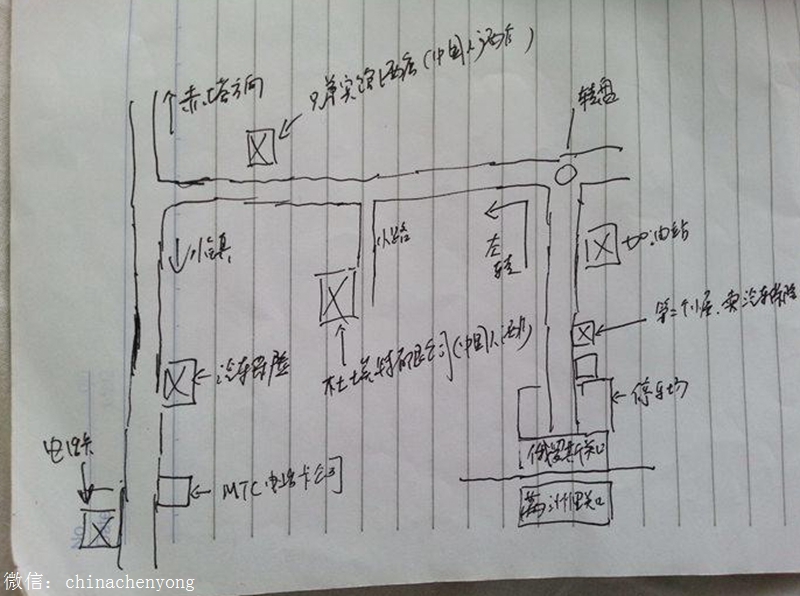 赤塔方向
宾馆酒店(中国人酒店)
转盘
小镇
小路
左
转
加油站
第二个小屋.卖汽车保险
汽车保险
公司(中国人酒店)
停车场
电话卡
MTC电话卡公司
俄罗斯关口
满洲里关口
微信：chinachenyong